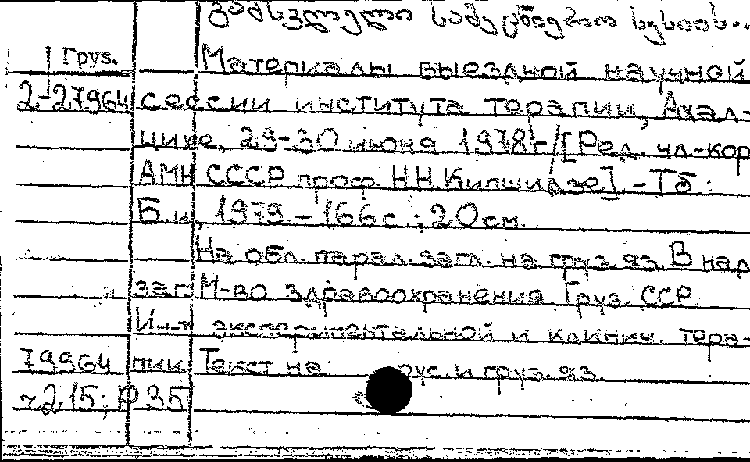 გამსვლელი სამეცნიერო სესიის..
Груз. Материалы выездной научной
2-27964 сессии института терапии, Ахал-
цихе, 29-30 июня 1978г/[Ред. чл-кор
АМН СССР проф. Н Н Кипшидзе]. - Тб.:
Б.и, 1979. - 166 с.; 20 см.
На обл. парал. загл. на груз. яз. В над
заг. М-во здравоохранения Груз. ССР
И.-т экспериментальной и клинич. тера-
79964 пии. Текст на рус. и груз. яз.
ч 2.15; Р 35